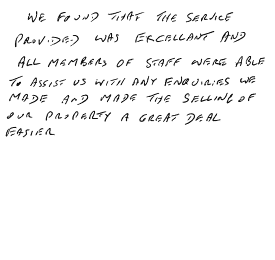 WE FOUND THAT THE SERVICE
PROVIDED WAS EXCELLANT AND
ALL MEMBERS OF STAFF WERE ABLE
TO ASSIST US WITH ANY ENQUIRIES WE
MADE AND MADE THE SELLING OF
OUR PROPERTY A GREAT DEAL
EASIER